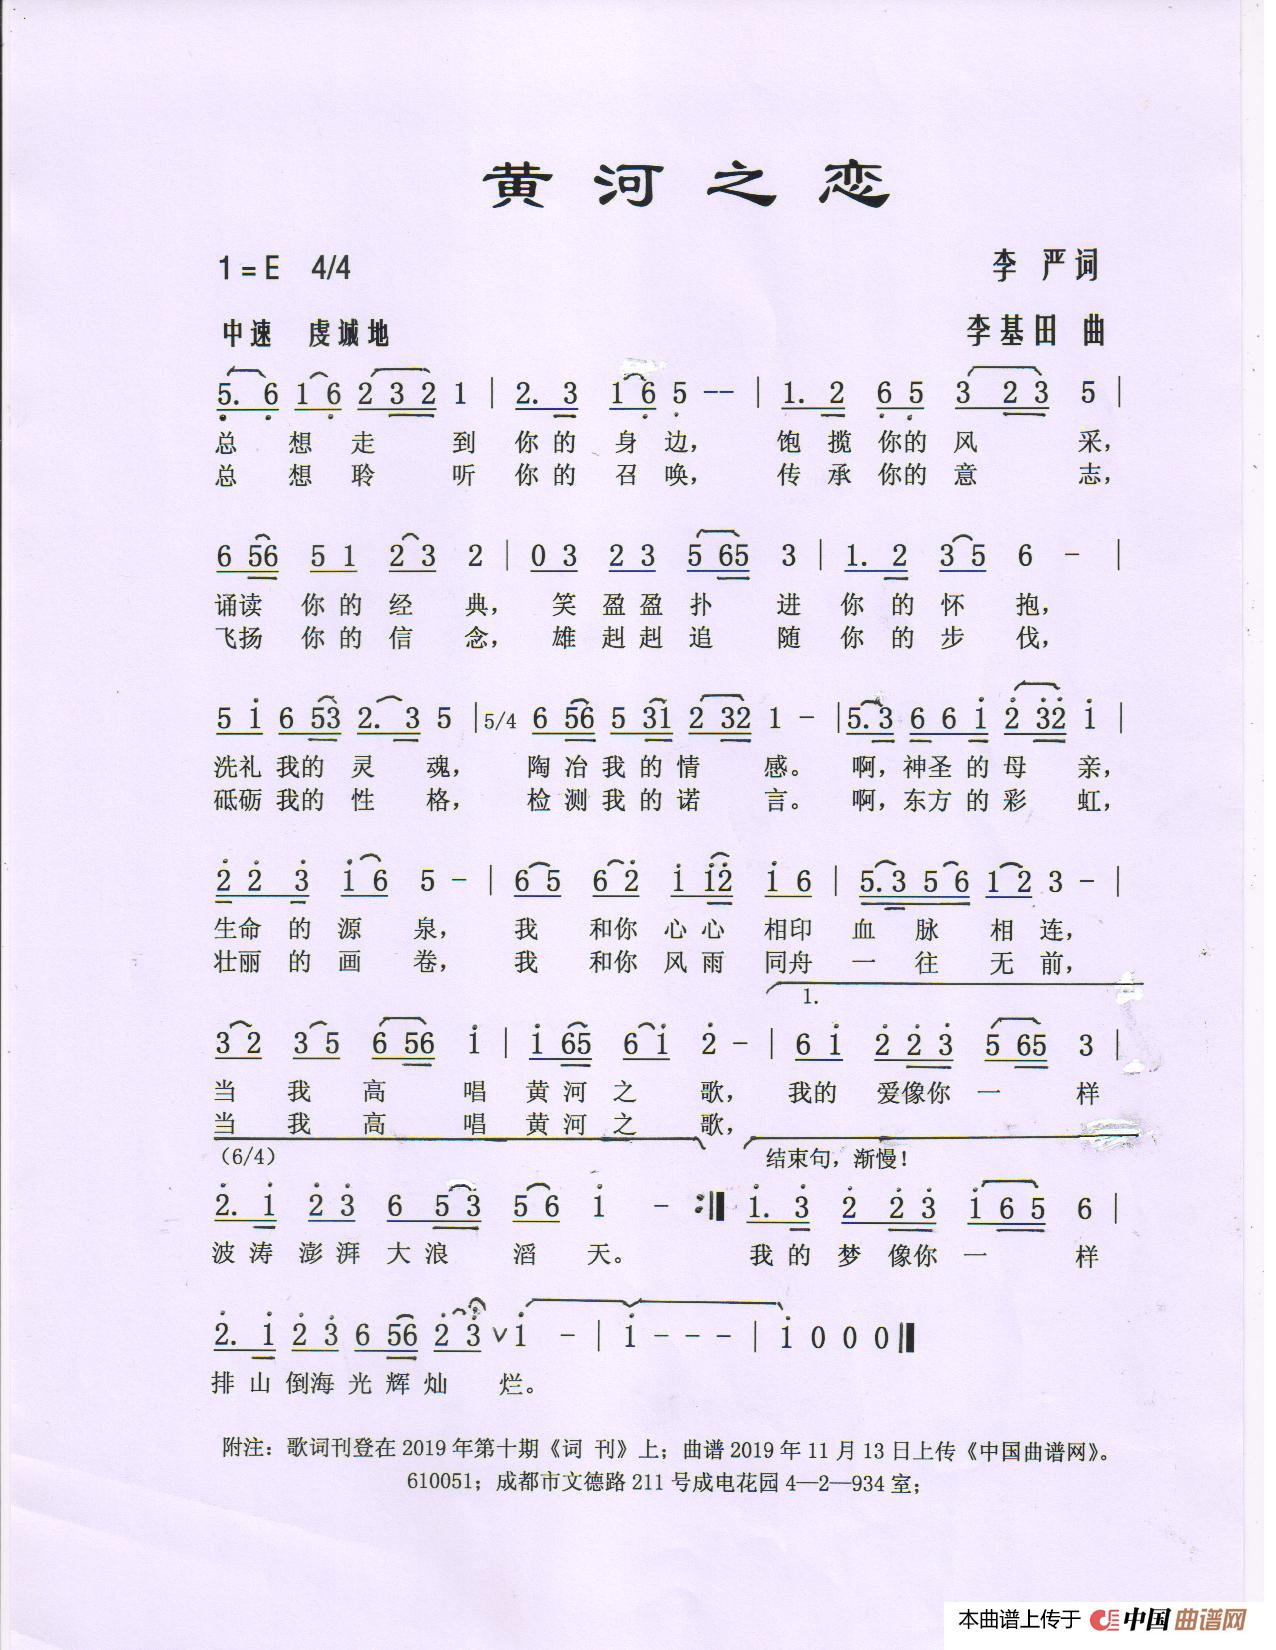 黄河之恋
1=E 4/4 李 严词
中速 虔诚地 李基田 曲
5. 6 1 6 2 3 2 1 | 2. 3 1 6 5 -- | 1. 2 6 5 3 2 3 5 |
总 想 走 到 你 的 身 边, 饱 揽 你的 风 采,
总 想 聆 听 你 的 召 唤, 传 承 你的 意 志,
6 56 5 1 2 3 2 | 0 3 2 3 5 65 3 | 1. 2 3 5 6 - |
诵读 你 的 经 典, 笑 盈 盈 扑 进 你 的 怀 抱,
飞扬 你 的 信 念, 雄 赳 赳 追 随 你 的 步 伐,
5 i 6 53 2. 3 5 |5/4 6 56 5 31 2 32 1 - |5. 3 6 6 i 2 32 i |
洗礼 我的 灵 魂, 陶 冶 我 的 情 感。 啊, 神圣 的 母 亲,
砥砺 我的 性 格, 检 测 我 的 诺 言。 啊, 东方 的 彩 虹,
2 2 3 i 6 5 - | 6 5 6 2 i i2 i 6 | 5. 3 5 6 1 2 3 - |
生命 的 源 泉, 我 和你 心 心 相印 血 脉 相 连,
壮丽 的 画 卷, 我 和你 风 雨 同舟 一 往 无 前,
1.
3 2 3 5 6 56 i | i 65 6 i 2 - | 6 i 2 2 3 5 65 3 |
当 我 高 唱 黄 河 之 歌, 我的 爱像你 一 样
当 我 高 唱 黄 河 之 歌,
(6/4) 结束句,渐慢!
2. i 2 3 6 5 3 5 6 i - :‖ i. 3 2 2 3 i 6 5 6 |
波 涛 澎 湃 大 浪 滔 天。 我 的 梦 像你 一 样
2. i 2 3 6 56 2 3 ∨ i - | i - - - | i 0 0 0 ‖
排 山 倒海 光 辉 灿 烂。
附注: 歌词刊登在 2019 年第十期《词 刊》上; 曲谱 2019 年 11 月 13 日上传《中国曲谱网》。
610051; 成都市文德路 211 号成电花园 4—2—934 室;
本曲谱上传于 中国曲谱网